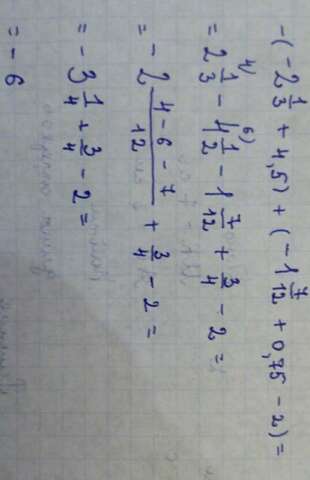 -(-2 1/3 + 4,5) + (-1 7/12 + 0,75 - 2) =
= 2 1/3 4) - 4 1/2 6) - 1 7/12 + 3/4 - 2 =
= - 2 (4 - 6 - 7)/12 + 3/4 - 2 =
= - 3 1/4 + 3/4 - 2 =
= - 6